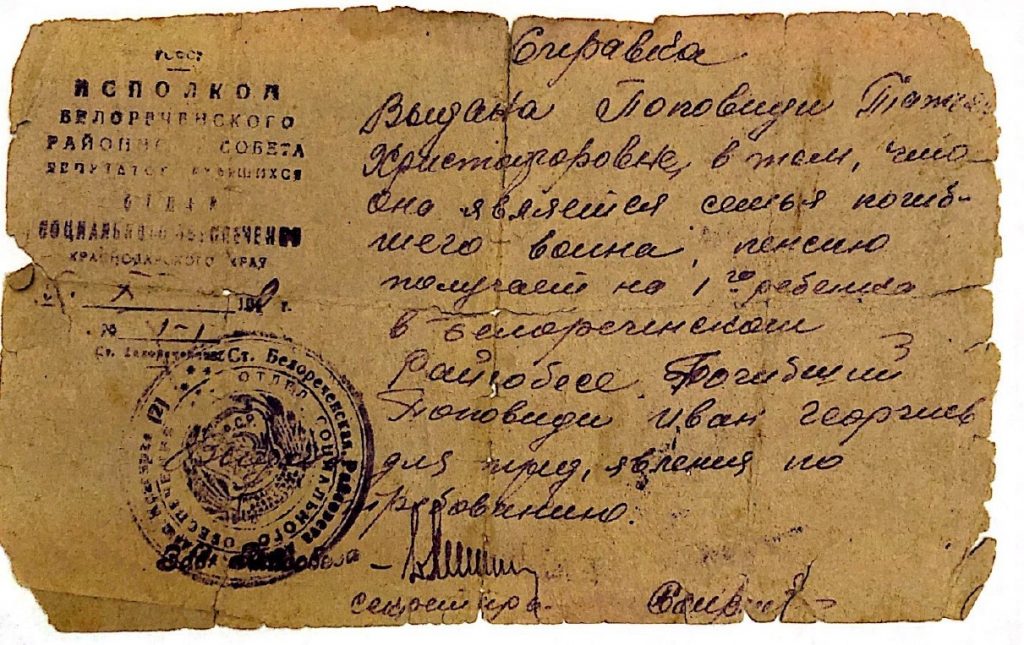 РСФСР
ИСПОЛКОМ
БЕЛОРЕЧЕНСКОГО
РАЙОННОГО СОВЕТА
ДЕПУТАТОВ ТРУДЯЩИХСЯ
ОТДЕЛ
СОЦИАЛЬНОГО ОБЕСПЕЧЕНИЯ
КРАСНОДАРСКОГО КРАЯ
X 194 г.
№ 1-1
Ст. Белореченская
Справка
Выдана Поповиди
Христофоровне, в том, что
она является семья погиб-
шего воина, пенсию
получает на 1го ребенка
в Белореченском
Райсобесе. Погибший
Поповиди Иван Георгиев
для пред, явления по
требованию.
Ст. Белореченская, Райсовета
ОТДЕЛ СОЦИАЛЬНОГО ОБЕСПЕЧЕНИЯ
Зав. Райсобеса
секретарь